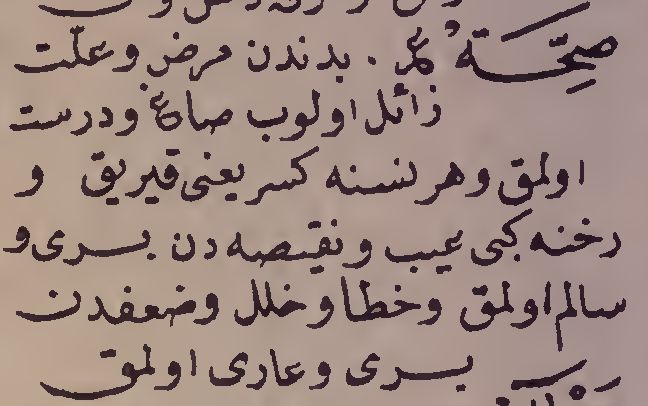 صِحَّة ع. بدندن مرض و علّت
زائل اولوب صاغ و درست
اولمق و هر نسنه كسر يعنی قيريق و
رخنه كبی عيب و نقيصه دن بری و
سالم اولمق و خطا و خلل و ضعفدن
بری و عاری اولمق